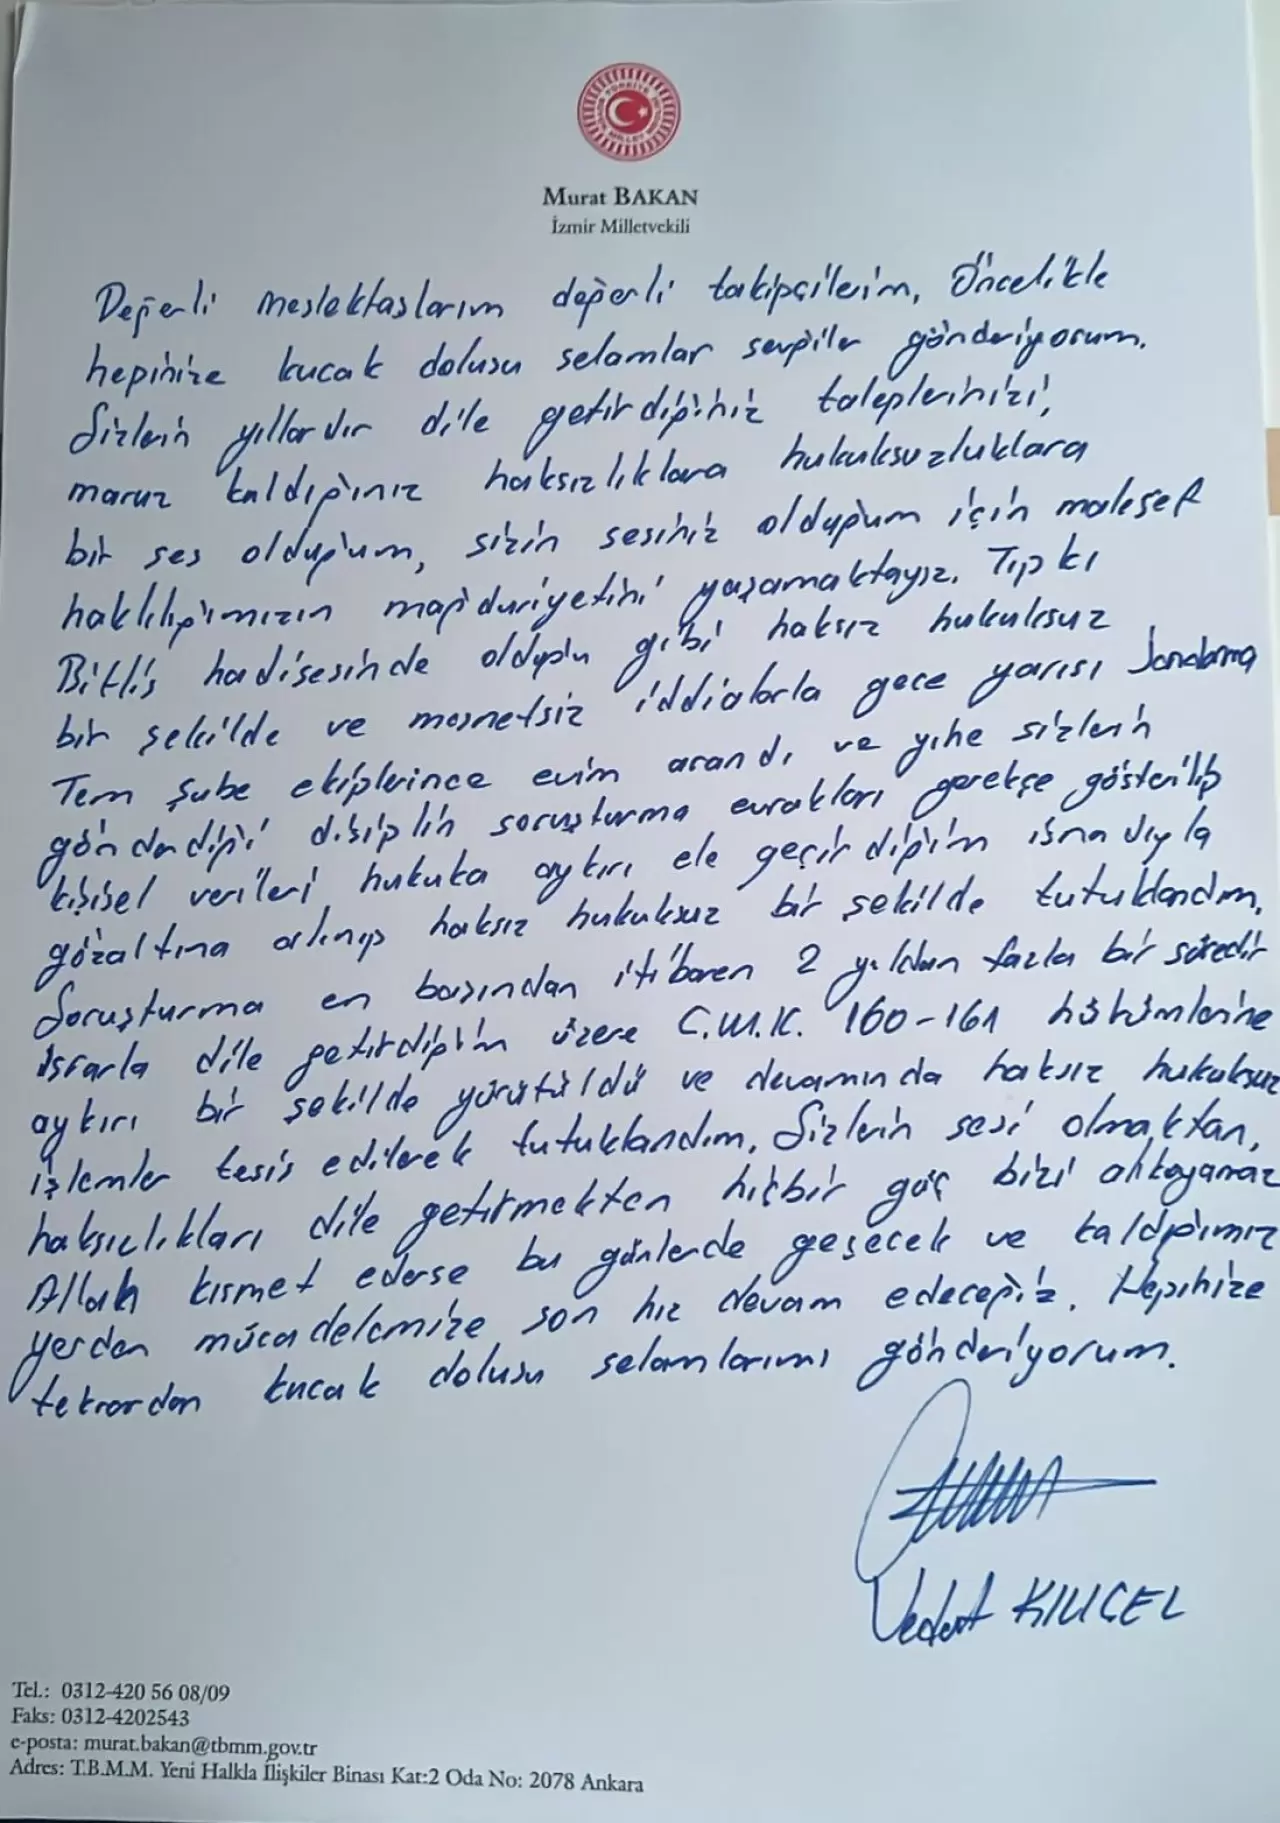 TÜRKİYE BÜYÜK MİLLET MECLİSİ
Murat BAKAN
İzmir Milletvekili
Değerli meslektaşlarım değerli takipçilerim, Öncelikle
hepinize kucak dolusu selamlar sevgiler gönderiyorum.
Sizlerin yıllardır dile getirdiğiniz taleplerinizi,
maruz kaldığınız haksızlıklara hukuksuzluklara
bir ses olduğum, sizin sesiniz olduğum için malesef
haklılığımızın mağduriyetini yaşamaktayız. Tıpkı
Bitlis hadisesinde olduğu gibi haksız hukuksuz
bir şekilde ve mesnetsiz iddialarla gece yarısı Jandarma
Tem Şube ekiplerince evim arandı ve yine sizlerin
gönderdiği disiplin soruşturma evrakları gerekçe gösterilip
kişisel verileri hukuka aykırı ele geçirdiğim isnadıyla
gözaltına alınıp haksız hukuksuz bir şekilde tutuklandım.
Soruşturma en başından itibaren 2 yıldan fazla bir süredir
ısrarla dile getirdiğim üzere C.M.K. 160-161 hükümlerine
aykırı bir şekilde yürütüldü ve devamında haksız hukuksuz
işlemler tesis edilerek tutuklandım. Sizlerin sesi olmaktan,
haksızlıkları dile getirmekten hiçbir güç bizi alıkoyamaz
Allah kısmet ederse bu günlerde geçecek ve kaldığımız
yerden mücadelemize son hız devam edeceğiz. Hepinize
tekrardan kucak dolusu selamlarımı gönderiyorum.
Vedat KILIÇEL
Tel.: 0312-420 56 08/09
Faks: 0312-4202543
e-posta: murat.bakan@tbmm.gov.tr
Adres: T.B.M.M. Yeni Halkla İlişkiler Binası Kat:2 Oda No: 2078 Ankara